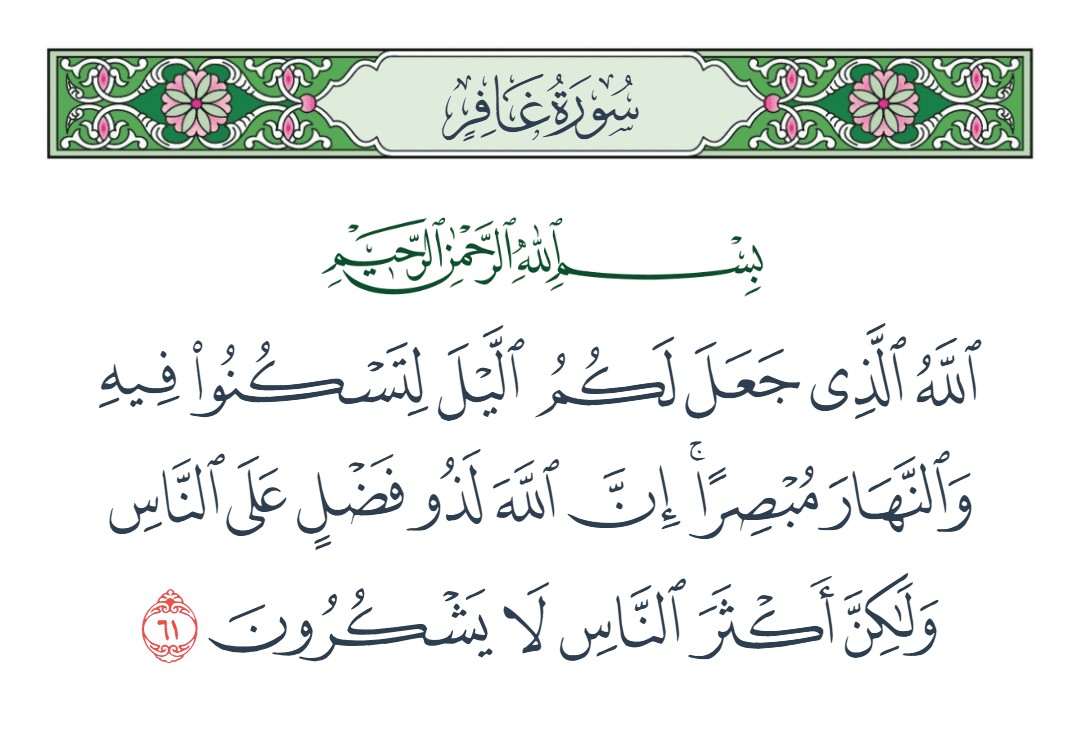 سُورَةُ غَافِرٍ
بِسْمِ ٱللَّهِ ٱلرَّحْمَٰنِ ٱلرَّحِيمِ
ٱللَّهُ ٱلَّذِى جَعَلَ لَكُمُ ٱلَّيْلَ لِتَسْكُنُوا۟ فِيهِ
وَٱلنَّهَارَ مُبْصِرًا ۚ إِنَّ ٱللَّهَ لَذُو فَضْلٍ عَلَى ٱلنَّاسِ
وَلَٰكِنَّ أَكْثَرَ ٱلنَّاسِ لَا يَشْكُرُونَ ٦١